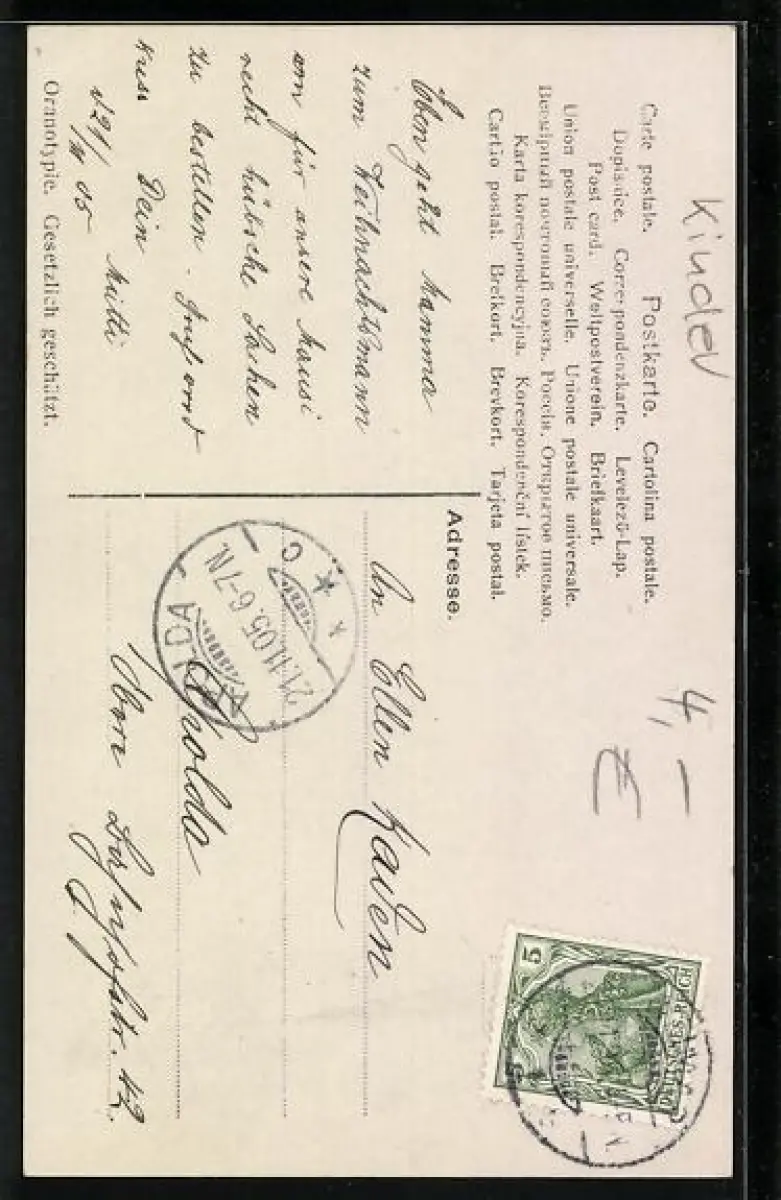 Kinder
4,-
€
Carte postale. Postkarte. Cartolina postale.
Dopisnice. Correspondenzkarte. Levelező-Lap.
Post card. Weltpostverein. Briefkaart.
Union postale universelle. Unione postale universale.
Всемірный почтовый союзъ. Россія. Открытое письмо.
Karta korespondencyjna. Korespondenční lístek.
Cartão postal. Brefkort. Brevkort. Tarjeta postal.
Eben geht Mamma
zum Weihnachtsmann
um für unsere Mausi
recht hübsche Sachen
zu bestellen. Gruß und
Kuss Dein Mutti
d 21/11 05
Oranotypie. Gesetzlich geschützt.
Adresse.
An Ellen Kaden
Apolda
Obere Bahnhofstr. 42.
21.11.05. 6-7N.
C
5
DEUTSCHES REICH